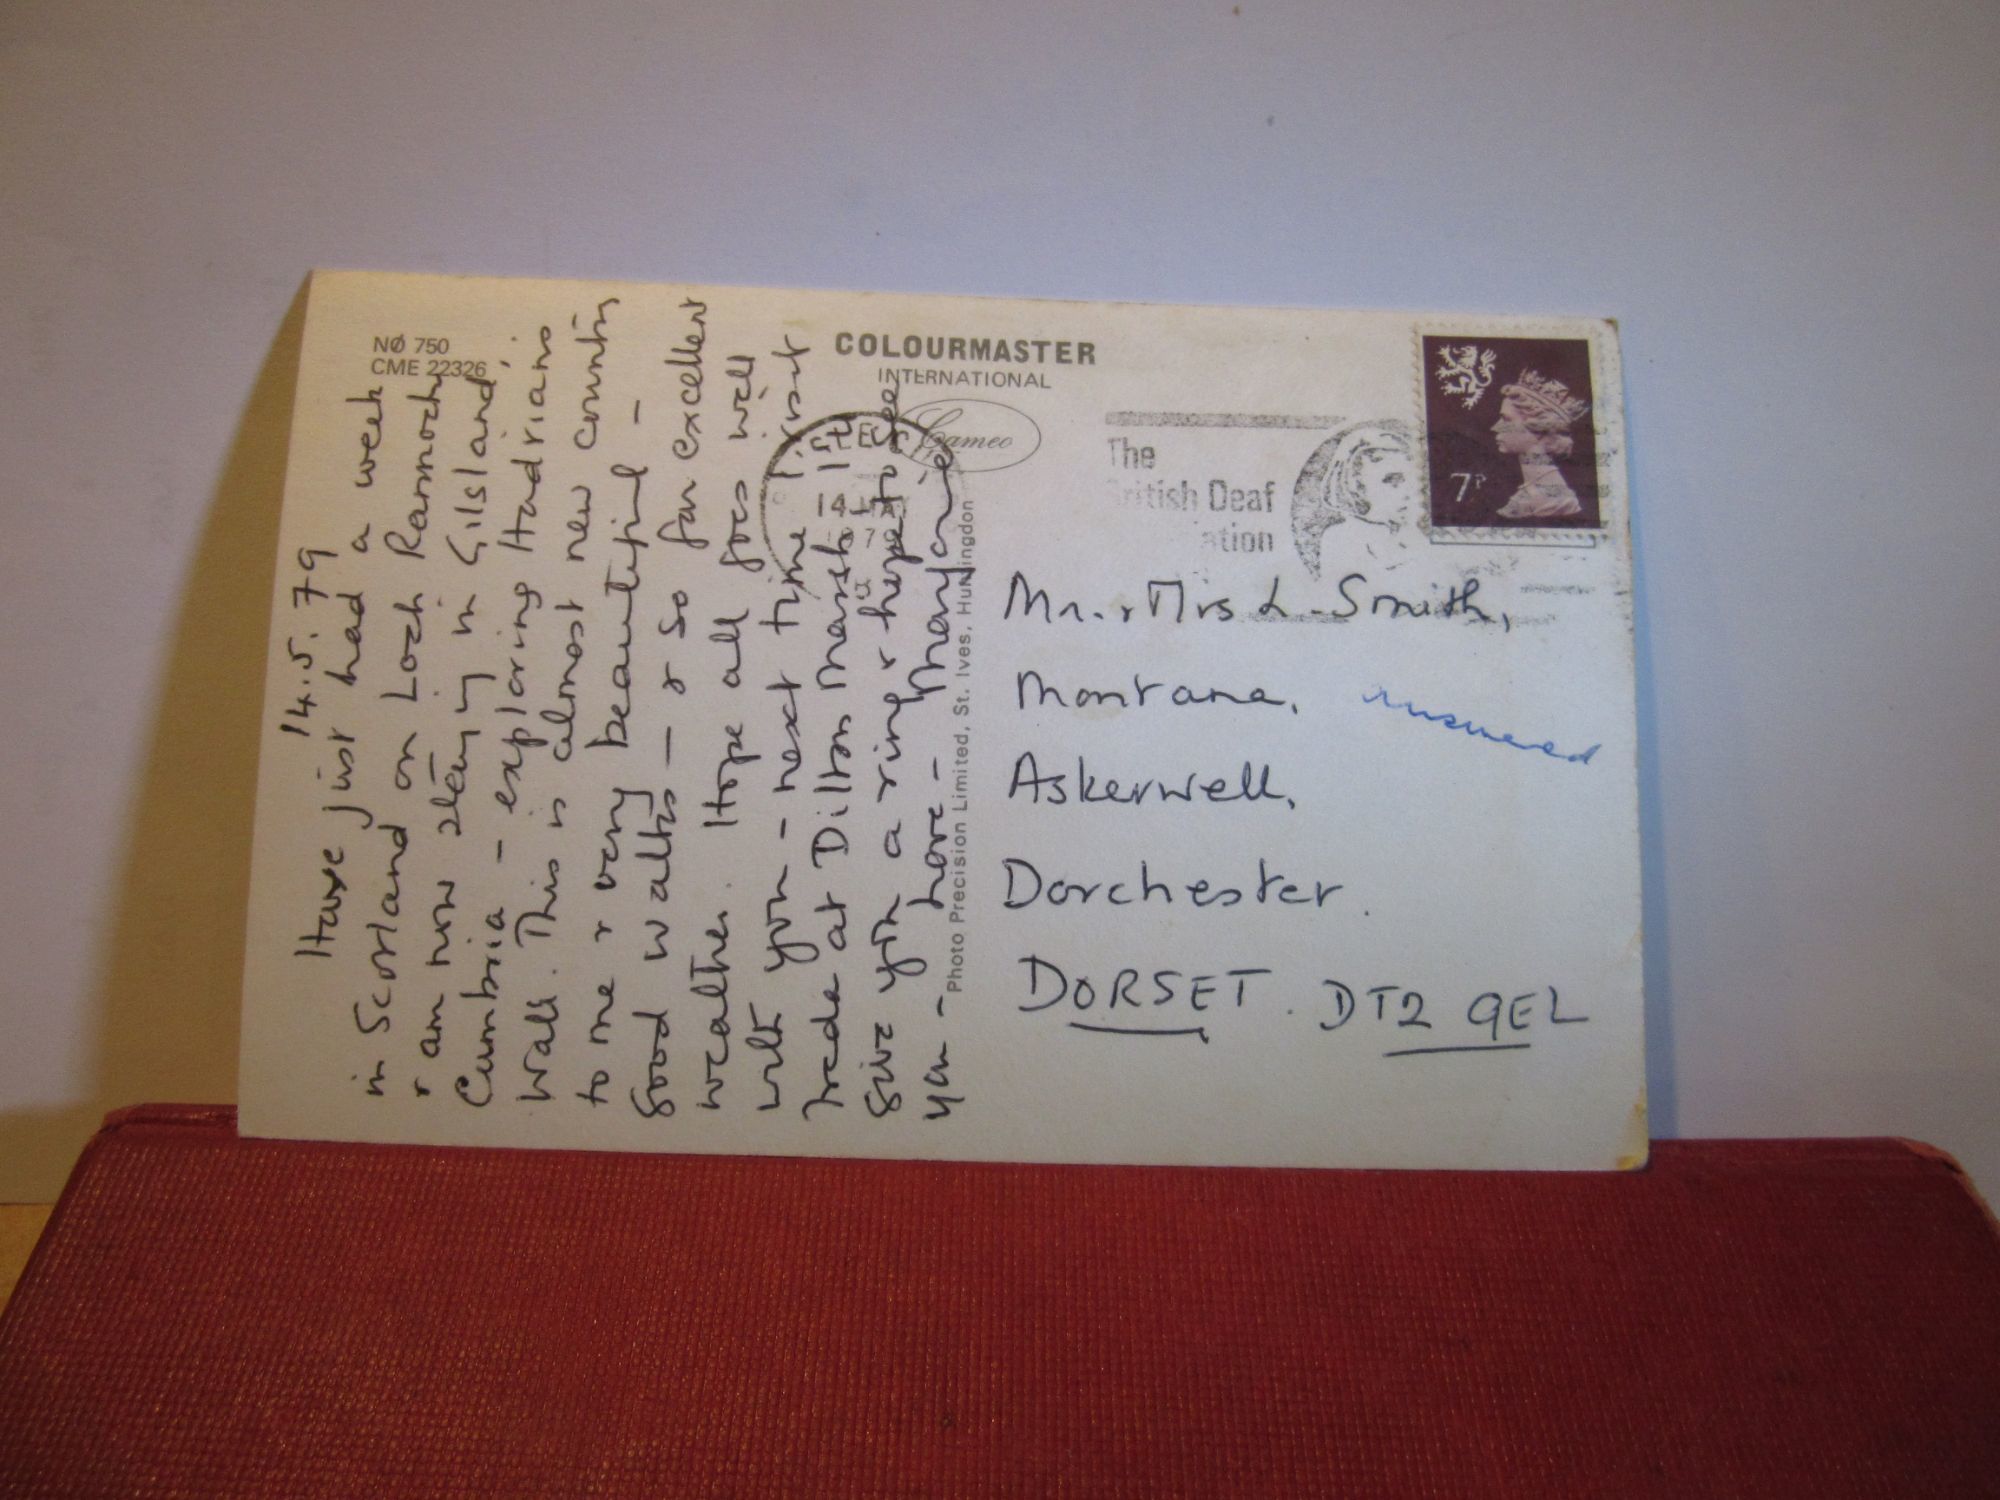 NØ 750
CME 22326
COLOURMASTER
INTERNATIONAL
Cameo
The
British Deaf
ation
7P
14
Photo Precision Limited, St. Ives, Huntingdon
14.5.79
Have just had a week
in Scotland on Loch Rannoch
& am now staying in Gilsland,
Cumbria – exploring Hadrians
Wall. This is almost new country
to me & very beautiful –
Good walks – & so far excellent
weather. Hope all goes well
with you – next time I visit
at Dilton Marsh I'll
give you a ring & hope to see
you – Love –
Mr. & Mrs L. Smith,
Montana,
answered
Askerwell,
Dorchester.
DORSET. DT2 9EL